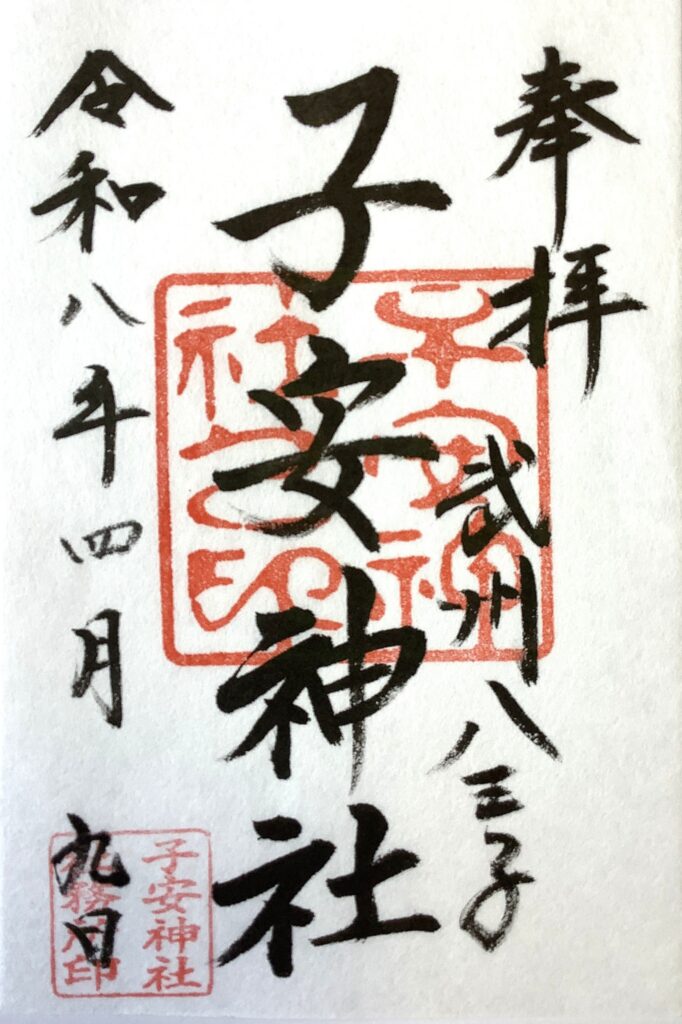 奉拝
武州八王子
子安神社
令和八年四月九日
子安神社之印
子安神社
社務所印